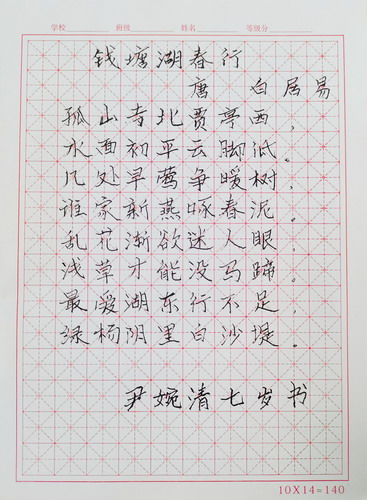 学校 班级 姓名 等级分
钱塘湖春行
唐 白居易
孤山寺北贾亭西，
水面初平云脚低。
几处早莺争暖树，
谁家新燕啄春泥。
乱花渐欲迷人眼，
浅草才能没马蹄。
最爱湖东行不足，
绿杨阴里白沙堤。
尹婉清七岁书
10X14=140